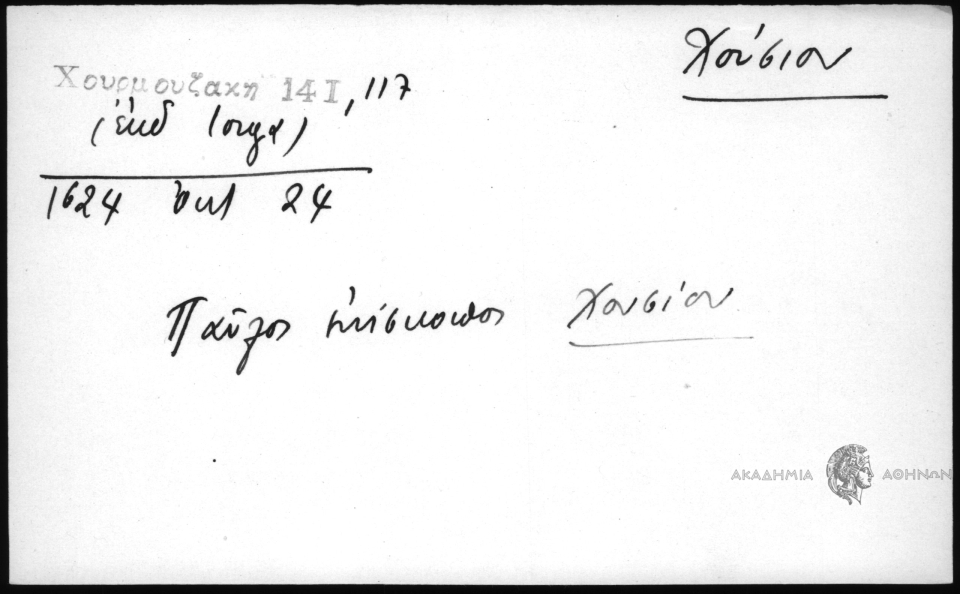 Χούσιον
Χουρμουζακη 14I, 117
(ἐκδ Ιοργα)
1624 Ὀκτ 24
Παῦλος ἐπίσκοπος Χουσίου
ΑΚΑΔΗΜΙΑ ΑΘΗΝΩΝ